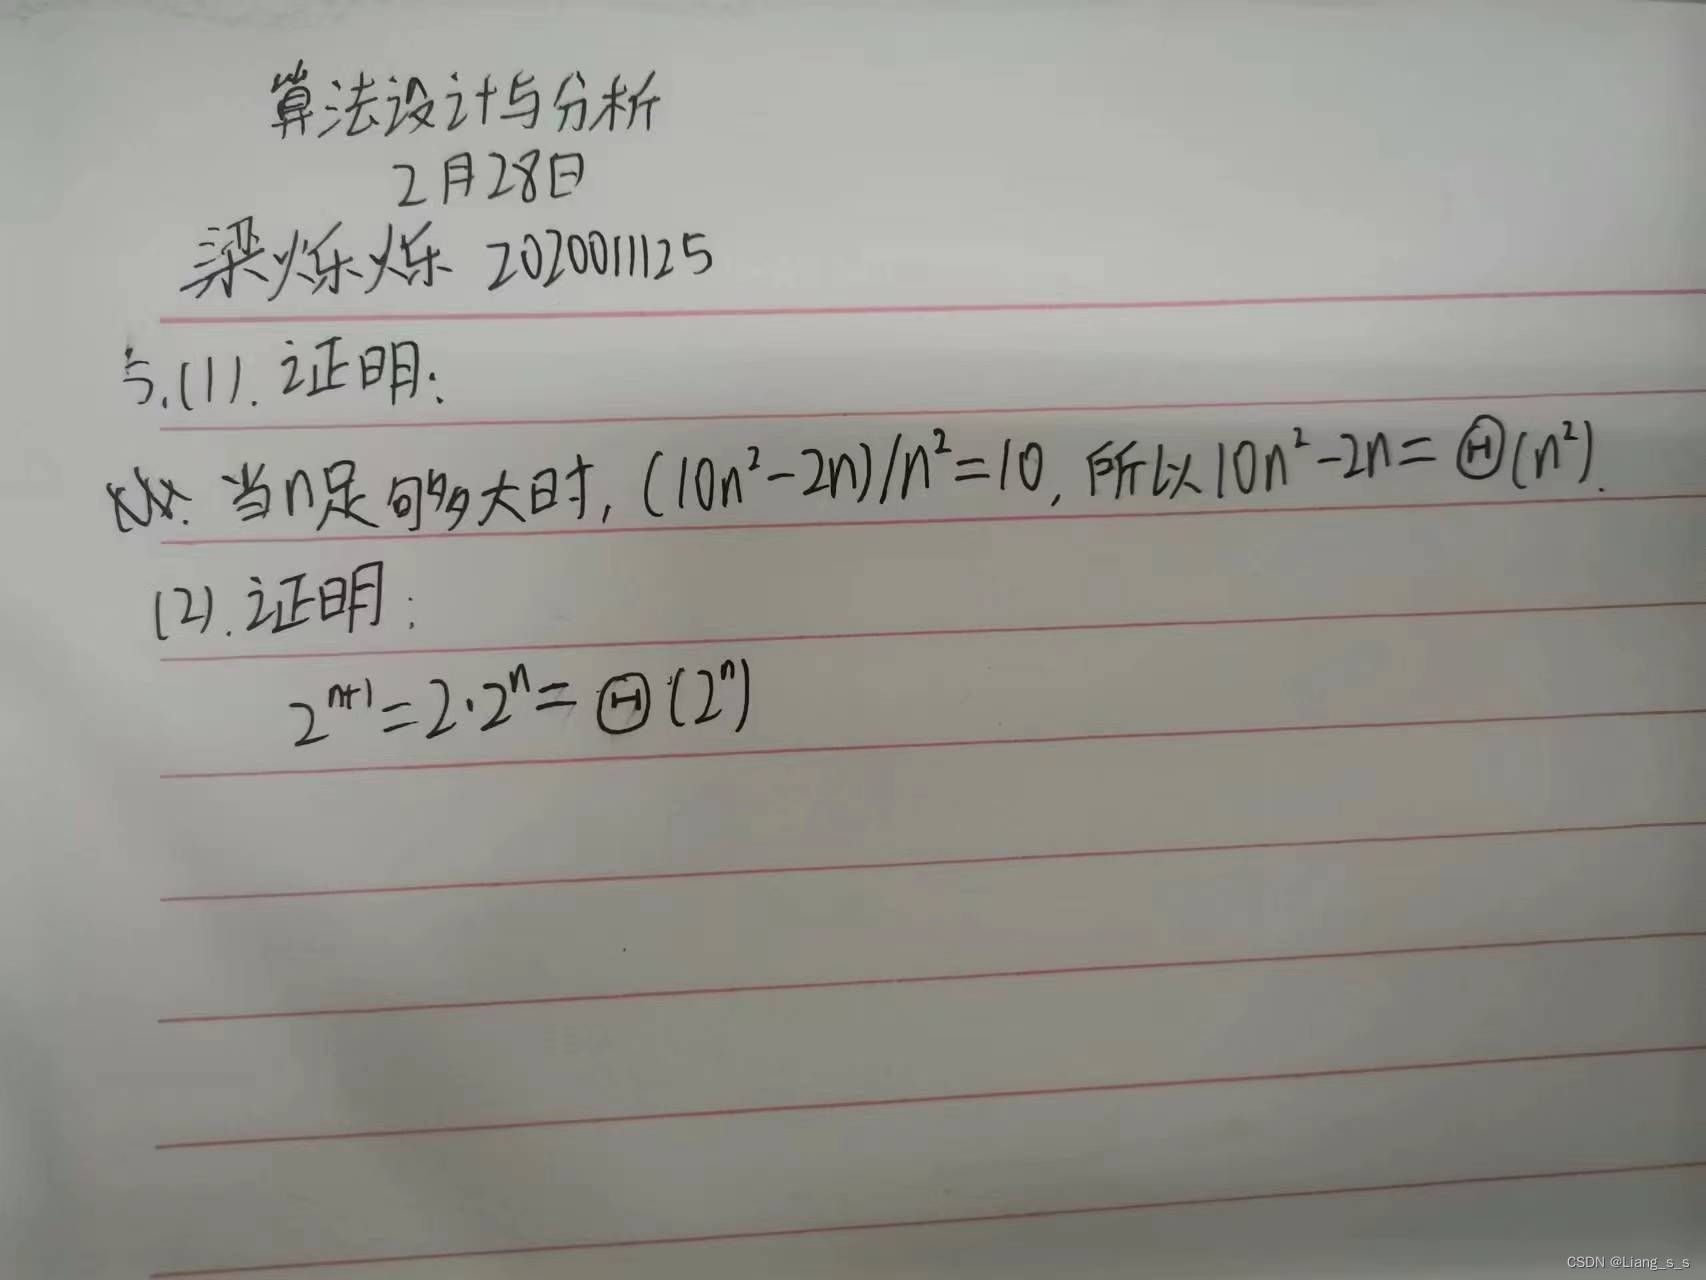 算法设计与分析
2月28日
梁烁烁 2020011125
5.(1).证明:
当n足够多大时,(10n²-2n)/n²=10,所以10n²-2n=Θ(n²).
(2).证明:
2ⁿ⁺¹=2·2ⁿ=Θ(2ⁿ)
CSDN @Liang_s_s